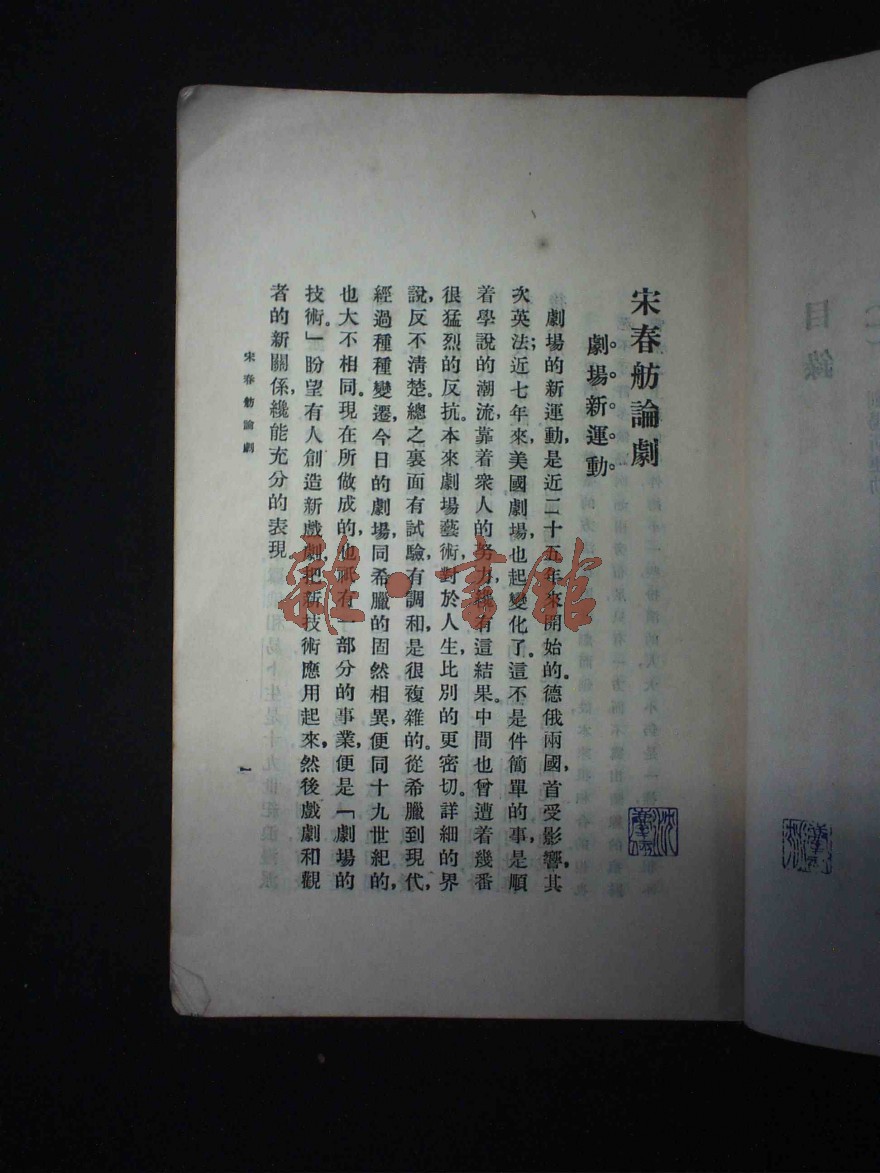 宋春舫論劇
劇場新運動
劇場的新運動,是近二十五年來開始的。德俄兩國,首受影響,其
次英法;近七年來,美國劇場也起變化了。這不是件簡單的事,是順
着學說的潮流,靠着衆人的努力,纔有這結果。中間也曾遭着幾番
很猛烈的反抗。本來劇場藝術,對於人生,比別的更密切。詳細的界
說,反不清楚。總之裏面有試驗,有調和,是很複雜的。從希臘到現代,
經過種種變遷,今日的劇場,同希臘的固然相異,便同十九世紀的,
也大不相同。現在所做成的,他祇有一部分的事業,便是「劇場的
技術。」盼望有人創造新戲劇,把新技術應用起來,然後戲劇和觀
者的新關係,纔能充分的表現
宋春舫論劇
一
雜·書館
目錄